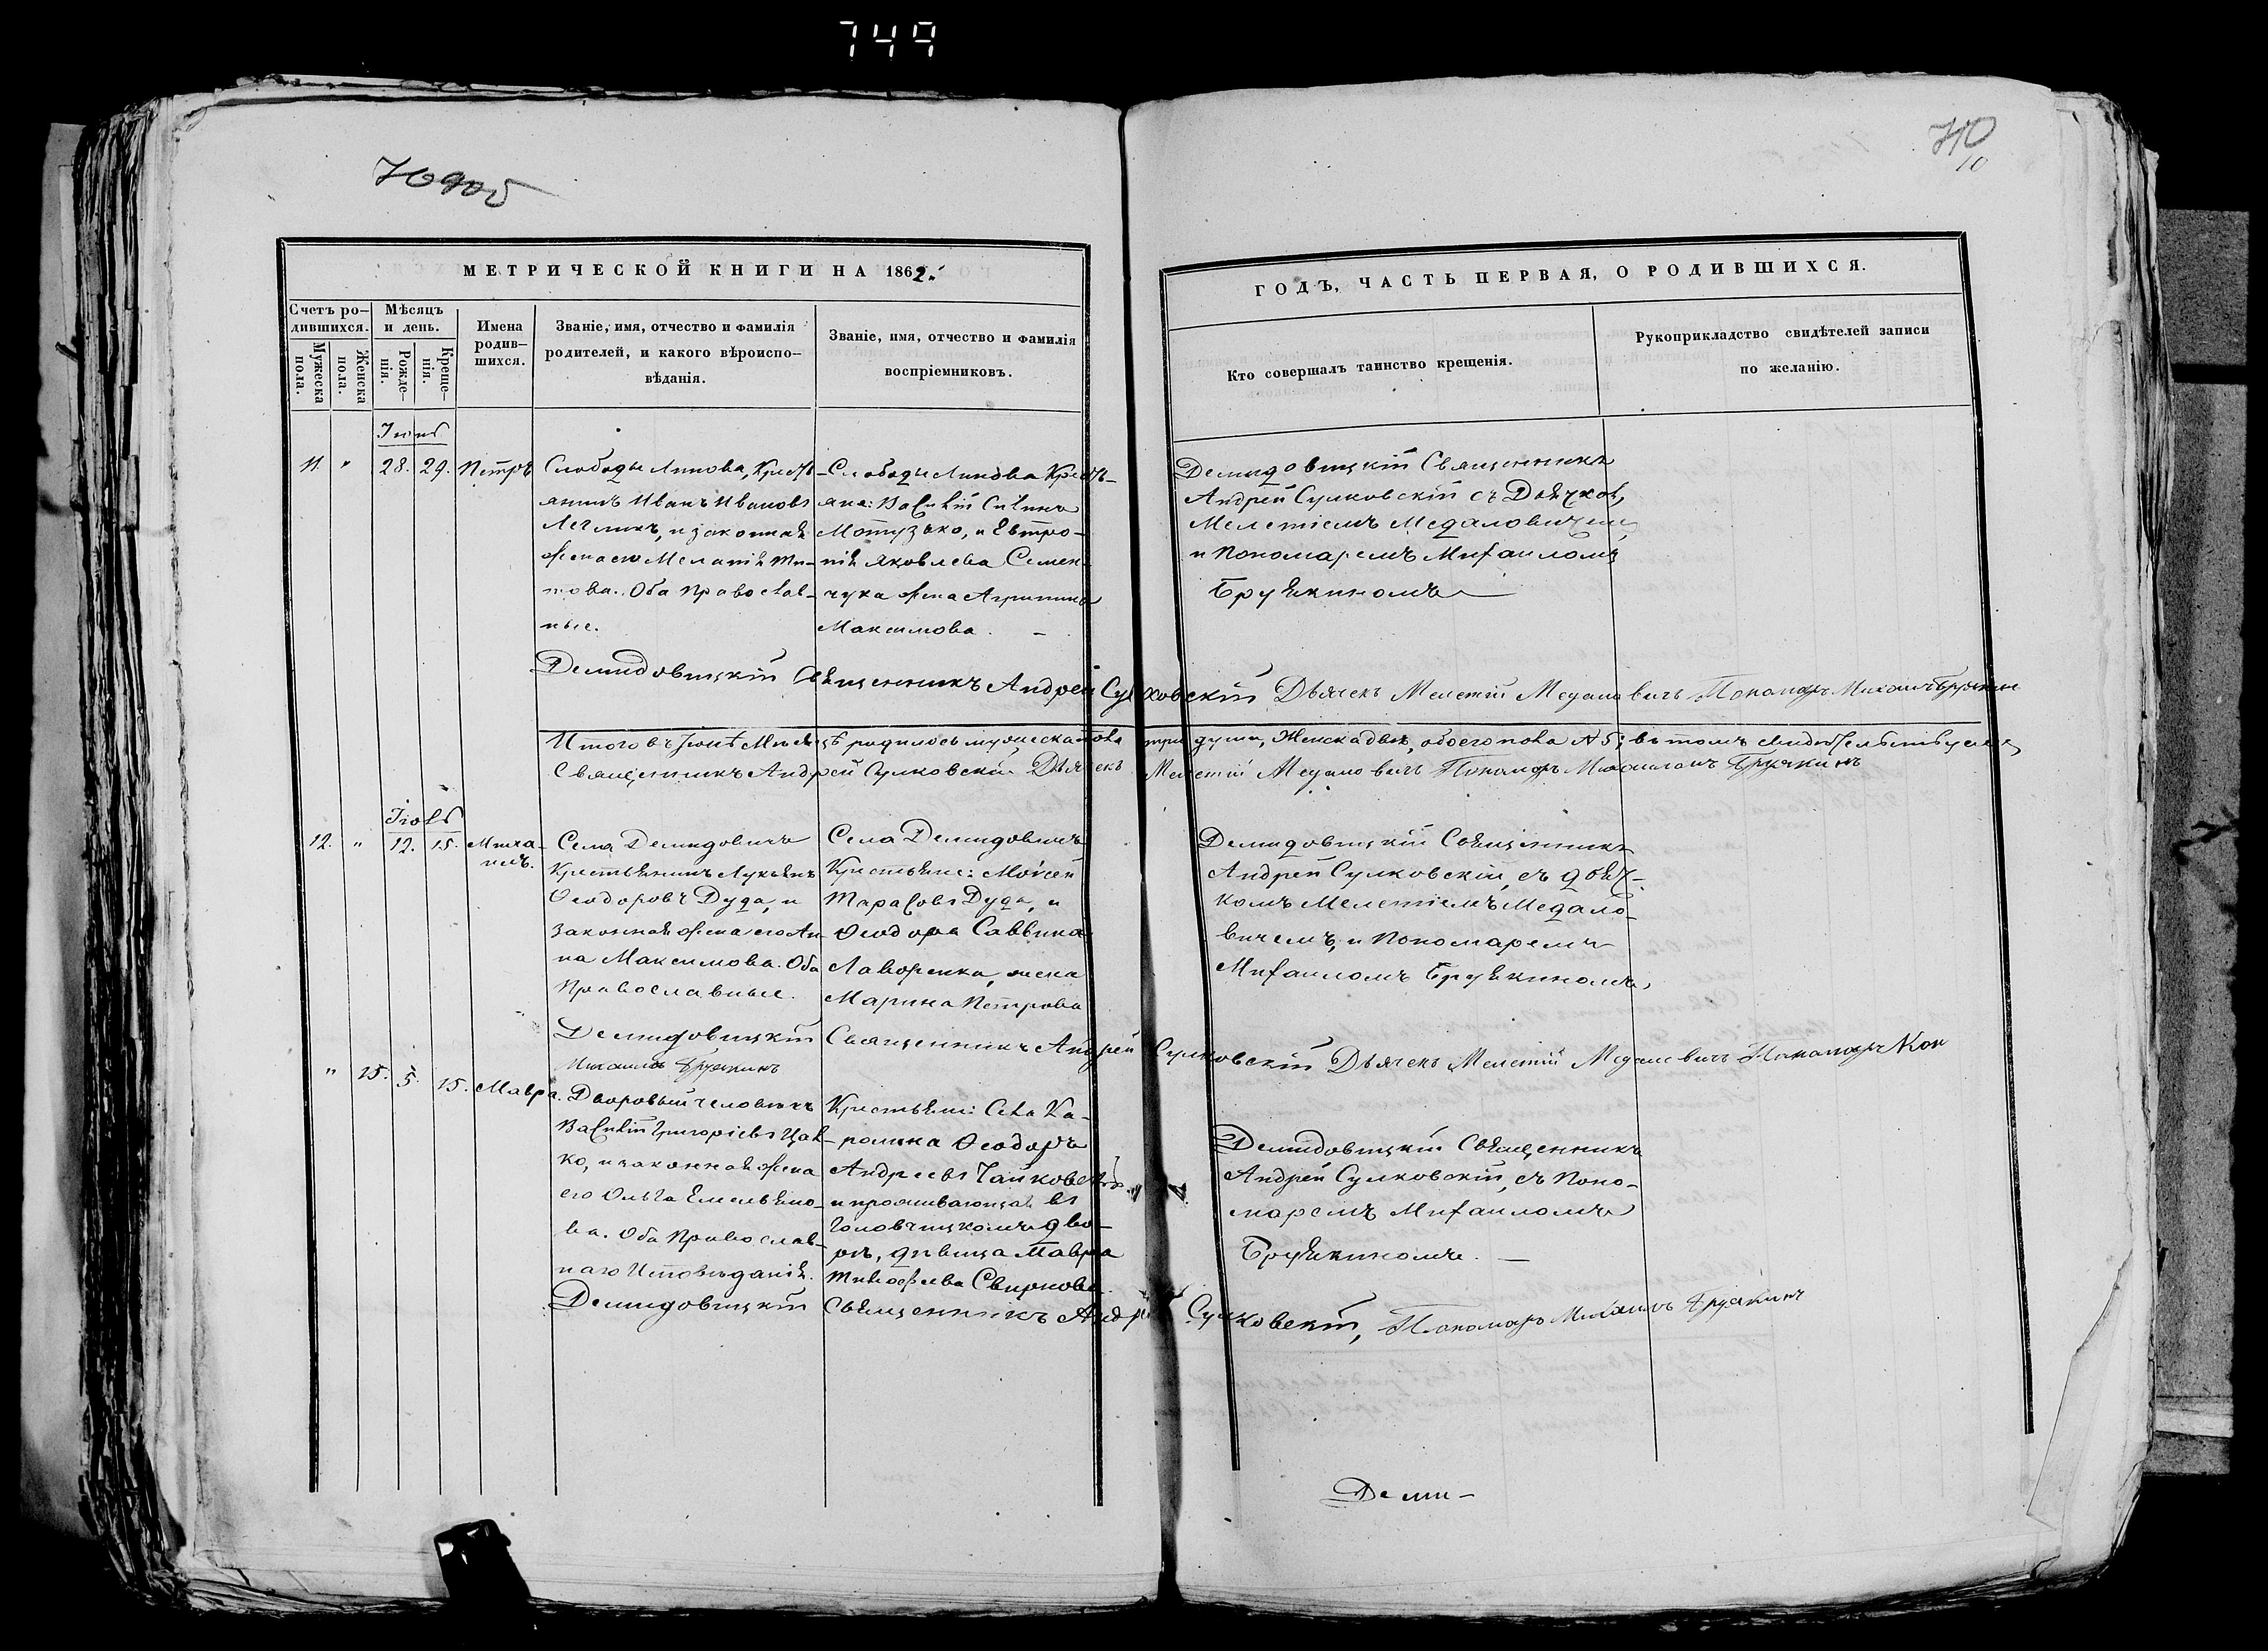 749
710
10
МЕТРИЧЕСКОЙ КНИГИ НА 1862.
Счетъ родившихся.
Мужеска пола.
Женска пола.
Мѣсяцъ и день.
Рожденія.
Крещенія.
Имена родившихся.
Званіе, имя, отчество и фамилія
родителей, и какого вѣроиспо-
вѣданія.
Званіе, имя, отчество и фамилія
воспріемниковъ.
ГОДЪ, ЧАСТЬ ПЕРВАЯ, О РОДИВШИХСЯ.
Кто совершалъ таинство крещенія.
Рукоприкладство свидѣтелей записи
по желанію.
Іюнь
11. " 28. 29. Петръ
Слободы Липова, Кресть-
янинъ Иванъ Ивановъ
и законная
жена его Меланія Ти-
това. Оба Православ-
ные.
Слободы Липова Кресть-
яне: Василій
Мотузько, и Евтро-
пія Яковлева Семен-
чука жена Агрипина
Максимова.
Демидовицкій Священникъ
Андрей Сулковскій съ Дьячком,
Мелетіемъ Медаловичемъ,
и Пономаремъ Михаиломъ
Брузкиномъ
Демидовицкій Священникъ Андрей Сулковскій Дьячекъ Мелетій Медаловичъ Пономарь Михаилъ
Итого въ Іюнѣ Мѣсяцѣ родилось мужеска пола три души, Женска двѣ, обоего пола № 5; въ томъ свидѣтельствуемъ
Священникъ Андрей Сулковскій Дьячекъ Мелетій Медаловичъ Пономарь Михаилъ
Іюль
12. " 12. 15. Миха-
илъ.
Села Демидовичъ
Крестьянинъ Лукьянъ
Ѳеодоровъ Дуда, и
законная жена его Ан-
на Максимова. Оба
Православные.
Села Демидовичъ
Крестьяне: Моисей
Тарасовъ Дуда, и
Ѳеодора Саввина
Лаворенка, жена
Марина Петрова
Демидовицкій Священникъ
Андрей Сулковскій, съ дьяч-
комъ Мелетіемъ Медало-
вичемъ, и Пономаремъ
Михаиломъ Брузкиномъ,
Демидовицкій Священникъ Андрей Сулковскій Дьячекъ Мелетій Медаловичъ Пономарь
Михаилъ
" 15. 5. 15. Мавра.
Дворовый человѣкъ
Василій Григорьевъ Цав-
ко, и законная жена
его Ольга Емельяно-
ва. Оба Православ-
наго Исповѣданія.
Крестьяне: Села Ка-
ролина Ѳеодоръ
Андреевъ
и проживающая въ
Головчицкомъ дво-
рѣ, дѣвица Мавра
Тимофѣева Свиркова.
Демидовицкій Священникъ
Андрей Сулковскій, съ Поно-
маремъ Михаиломъ
Брузкиномъ.
Демидовицкій Священникъ Андрей Сулковскій, Пономарь Михаилъ
Деми-